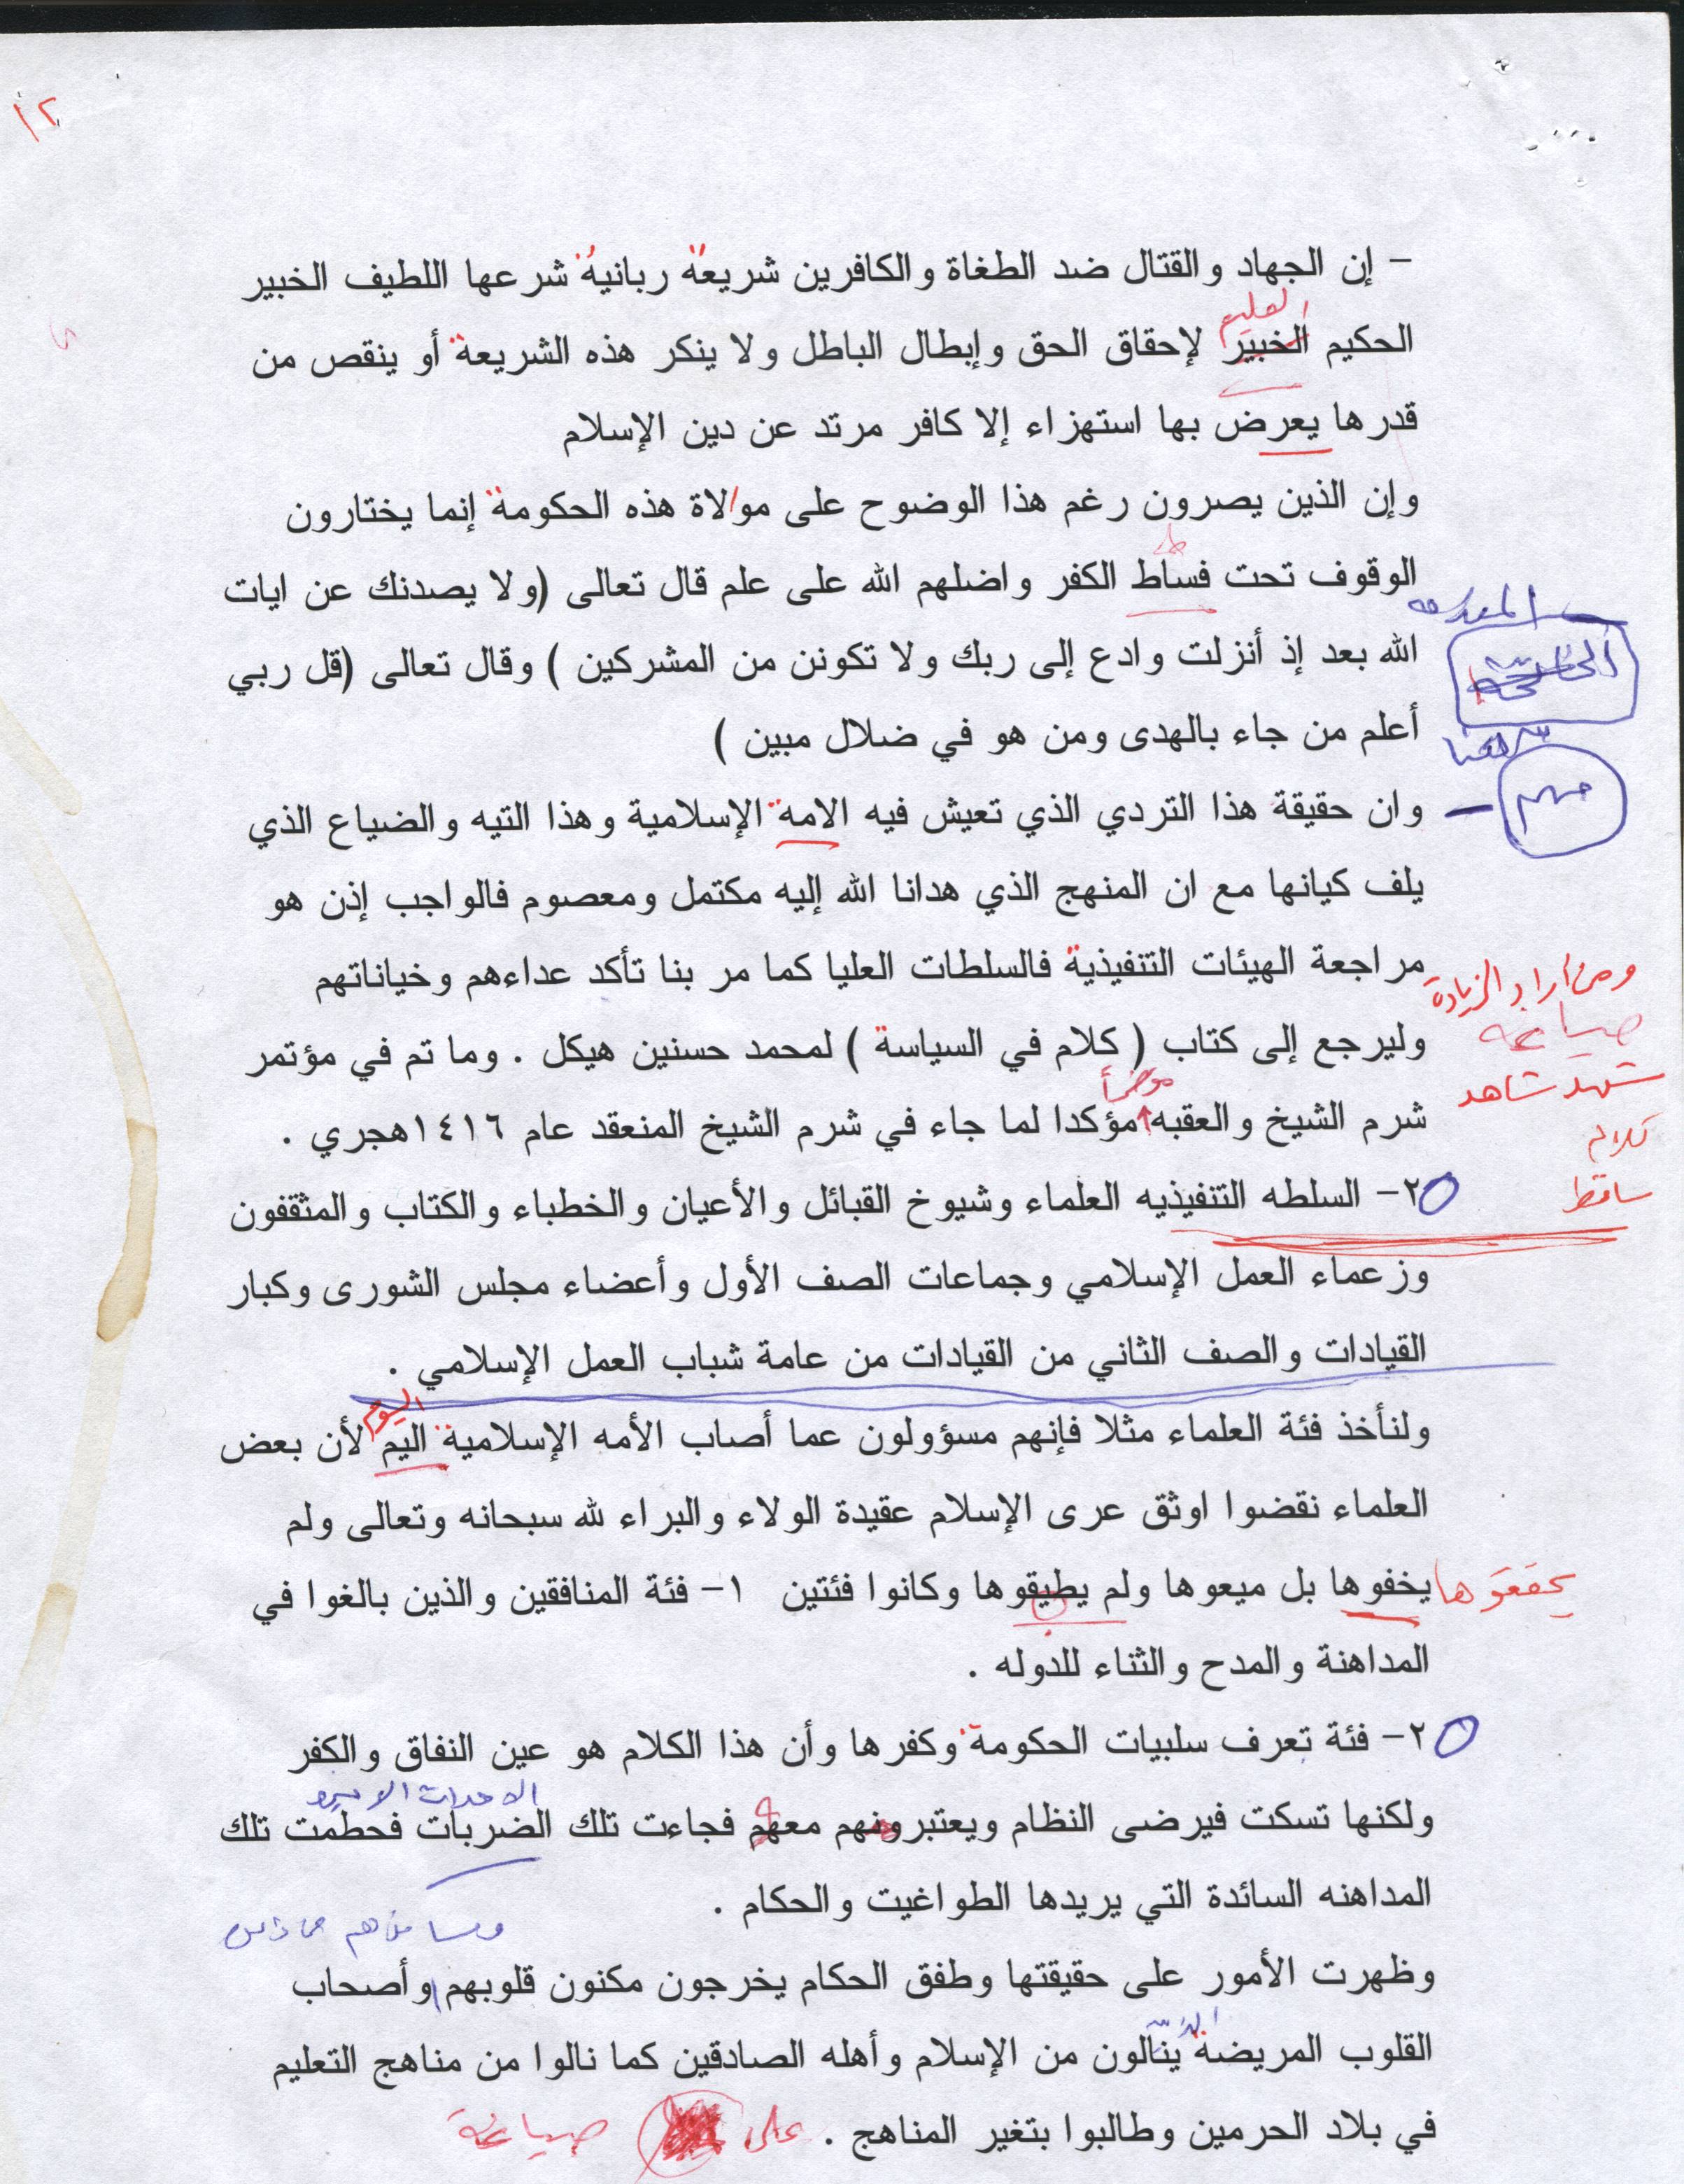 ١٢
– إن الجهاد والقتال ضد الطغاة والكافرين شريعة ربانية شرعها اللطيف الخبير
العليم
الحكيم الخبير لإحقاق الحق وإبطال الباطل ولا ينكر هذه الشريعة أو ينقص من
قدرها يعرض بها استهزاء إلا كافر مرتد عن دين الإسلام
وإن الذين يصرون رغم هذا الوضوح على موالاة هذه الحكومة إنما يختارون
الوقوف تحت فساط الكفر واضلهم الله على علم قال تعالى (ولا يصدنك عن ايات
الله بعد إذ أنزلت وادع إلى ربك ولا تكونن من المشركين ) وقال تعالى (قل ربي
أعلم من جاء بالهدى ومن هو في ضلال مبين )
مهم
وان حقيقة هذا التردي الذي تعيش فيه الامة الإسلامية وهذا التيه والضياع الذي
يلف كيانها مع ان المنهج الذي هدانا الله إليه مكتمل ومعصوم فالواجب إذن هو
مراجعة الهيئات التنفيذية فالسلطات العليا كما مر بنا تأكد عداءهم وخياناتهم
ومن أراد الزيادة
صياغة
وليرجع إلى كتاب ( كلام في السياسة ) لمحمد حسنين هيكل . وما تم في مؤتمر
شهد شاهد
شرم الشيخ والعقبه مؤكدا لما جاء في شرم الشيخ المنعقد عام ١٤١٦هجري .
كلام
ساقط
٢– السلطه التنفيذيه العلماء وشيوخ القبائل والأعيان والخطباء والكتاب والمثقفون
وزعماء العمل الإسلامي وجماعات الصف الأول وأعضاء مجلس الشورى وكبار
القيادات والصف الثاني من القيادات من عامة شباب العمل الإسلامي .
اليوم
ولنأخذ فئة العلماء مثلا فإنهم مسؤولون عما أصاب الأمه الإسلامية اليم لأن بعض
العلماء نقضوا اوثق عرى الإسلام عقيدة الولاء والبراء لله سبحانه وتعالى ولم
يحققوها
يخفوها بل ميعوها ولم يطيقوها وكانوا فئتين ١– فئة المنافقين والذين بالغوا في
المداهنة والمدح والثناء للدوله .
٢– فئة تعرف سلبيات الحكومة وكفرها وأن هذا الكلام هو عين النفاق والكفر
ولكنها تسكت فيرضى النظام ويعتبرونهم معهم فجاءت تلك الضربات فحطمت تلك
المداهنه السائدة التي يريدها الطواغيت والحكام .
وظهرت الأمور على حقيقتها وطفق الحكام يخرجون مكنون قلوبهم وأصحاب
القلوب المريضة ينالون من الإسلام وأهله الصادقين كما نالوا من مناهج التعليم
في بلاد الحرمين وطالبوا بتغير المناهج . على صياغة